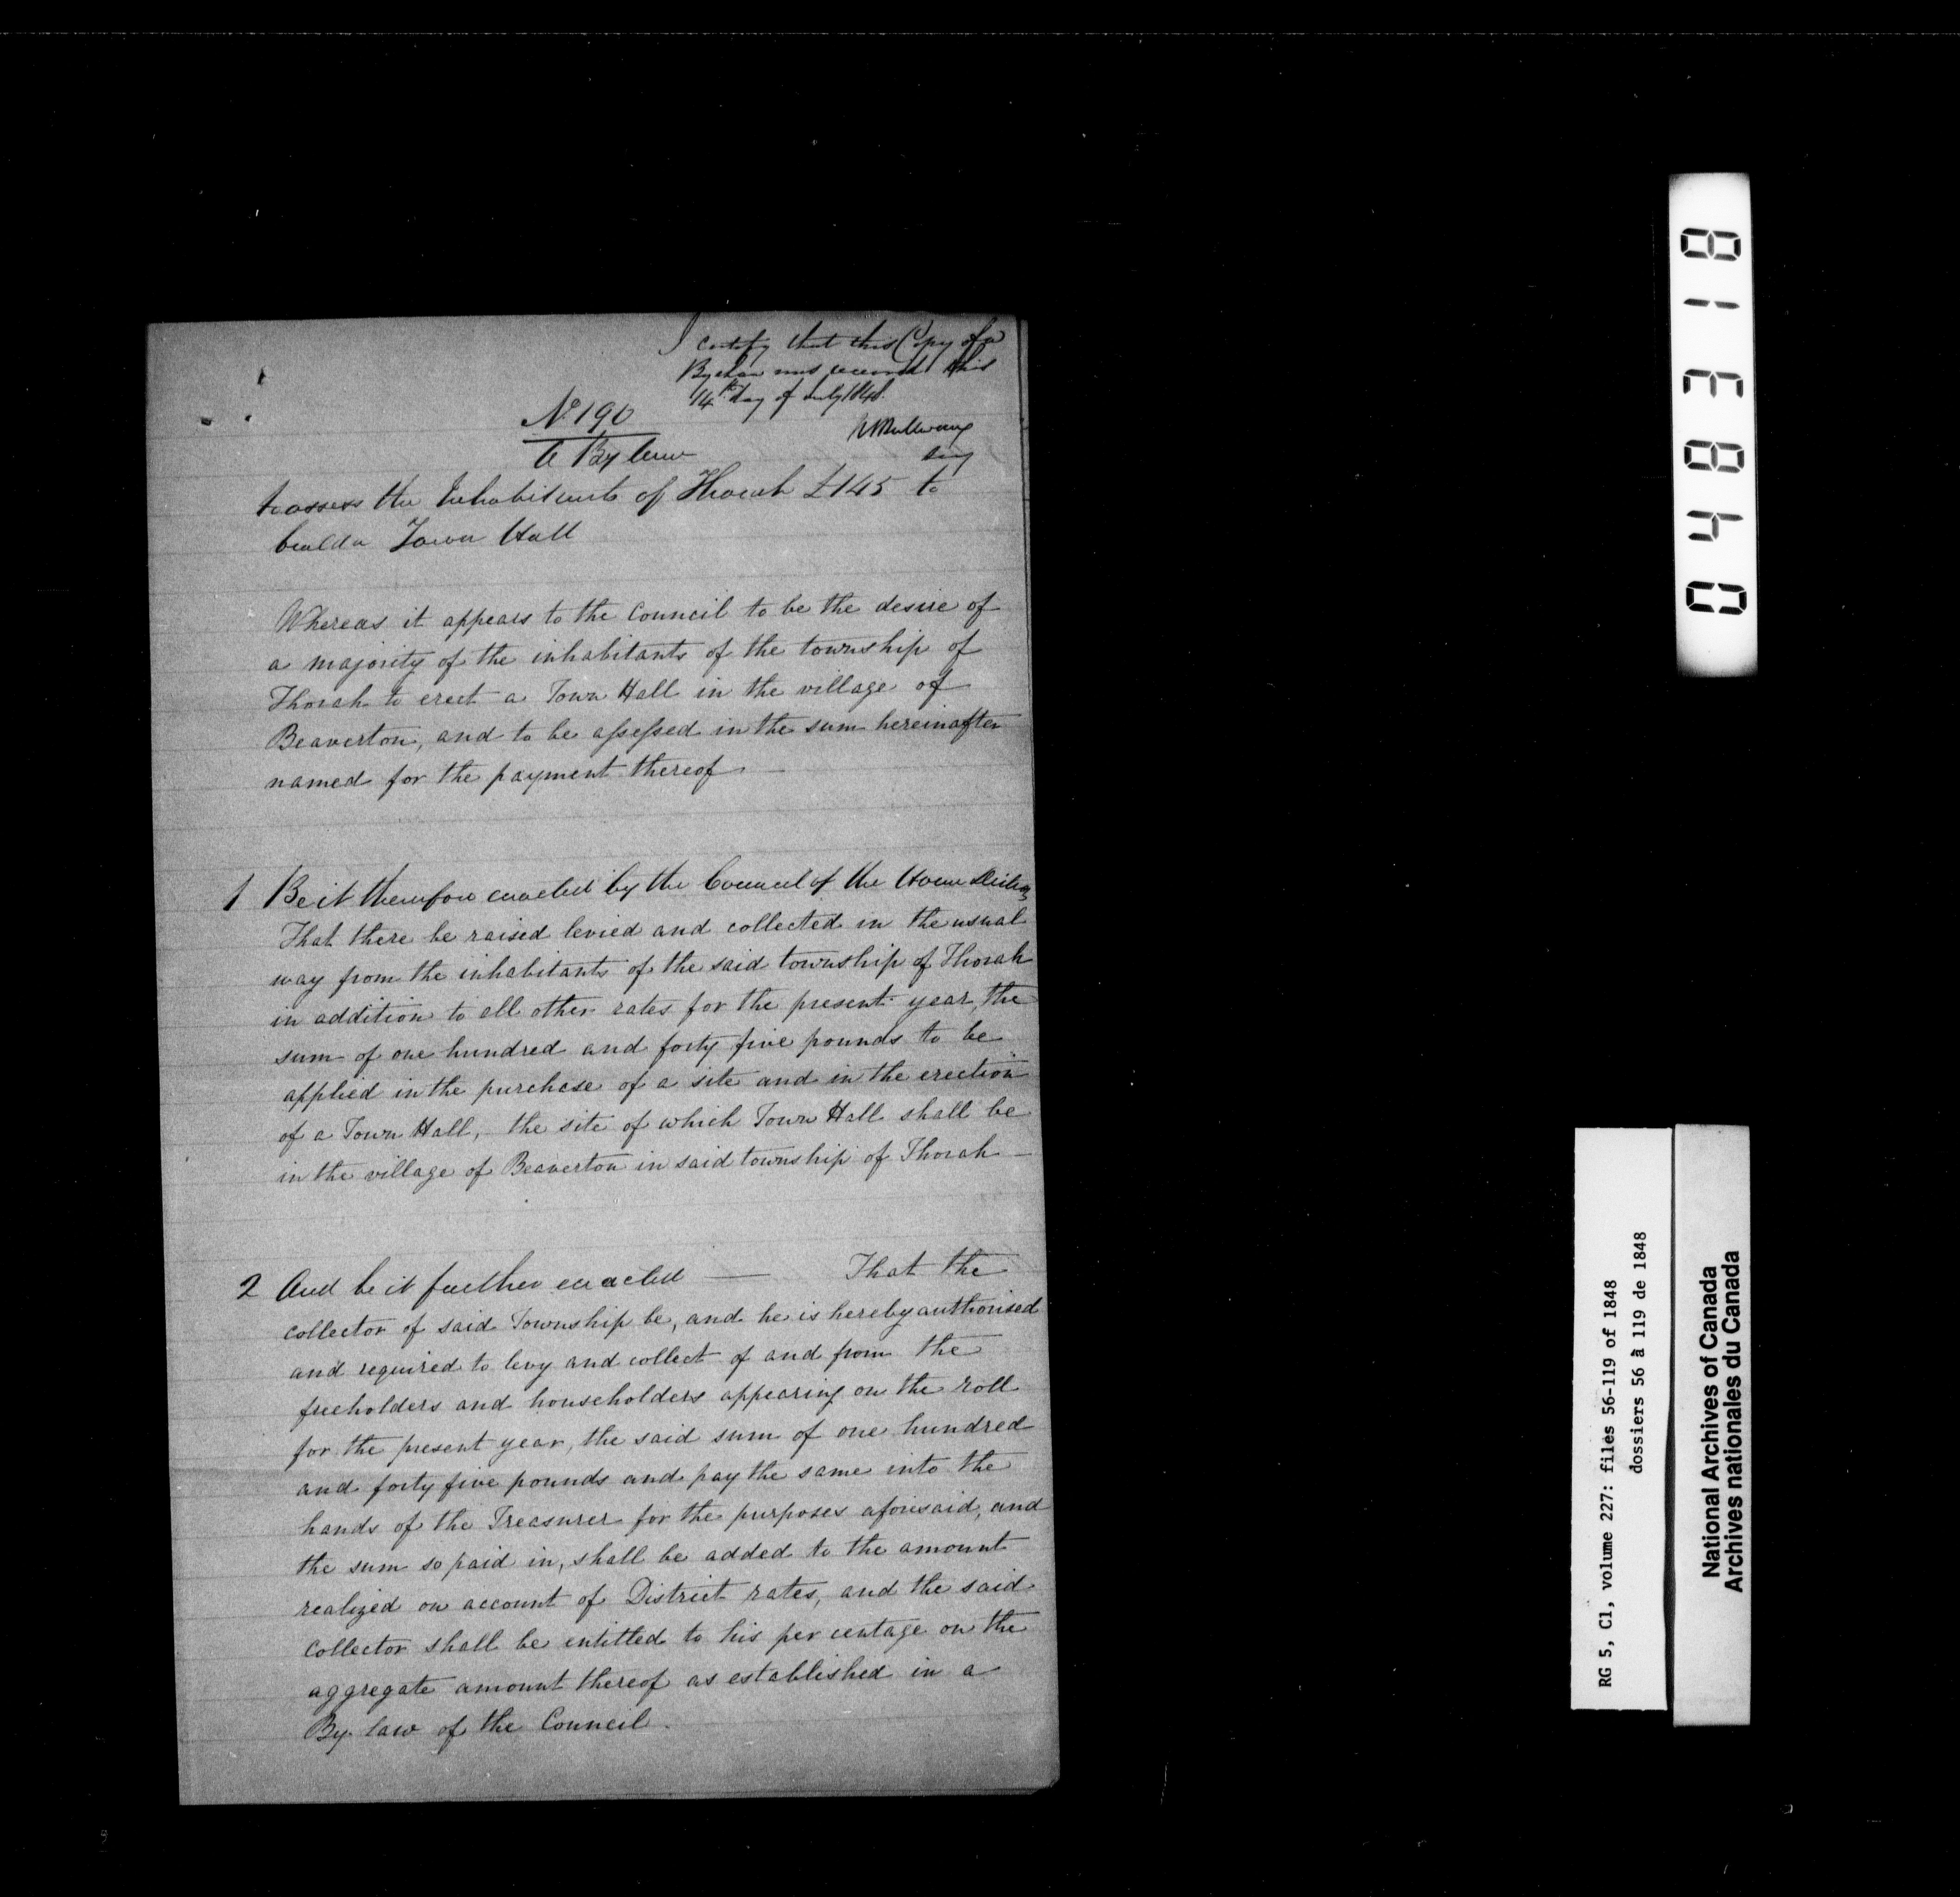 I certify that this Copy of a
By law was received this
14th day of July 1848.
Secy
No 190
A By law
to assess the Inhabitants of Thorah £145 to
build a Town Hall
Whereas it appears to the Council to be the desire of
a majority of the inhabitants of the township of
Thorah to erect a Town Hall in the village of
Beaverton, and to be assessed in the sum hereinafter
named for the payment thereof. —
1 Be it therefore enacted by the Council of the Home District
That there be raised levied and collected in the usual
way from the inhabitants of the said township of Thorah
in addition to all other rates for the present year, the
sum of one hundred and forty five pounds to be
applied in the purchase of a site and in the erection
of a Town Hall, the site of which Town Hall shall be
in the village of Beaverton in said township of Thorah —
2 And be it further enacted — That the
collector of said Township be, and he is hereby authorised
and required to levy and collect of and from the
freeholders and householders appearing on the roll
for the present year, the said sum of one hundred
and forty five pounds and pay the same into the
hands of the Treasurer for the purposes aforesaid, and
the sum so paid in, shall be added to the amount
realized on account of District rates, and the said
collector shall be entitled to his per centage on the
aggregate amount thereof as established in a
By law of the Council.
043818
RG 5, C1, volume 227: files 56-119 of 1848
dossiers 56 à 119 de 1848
National Archives of Canada
Archives nationales du Canada